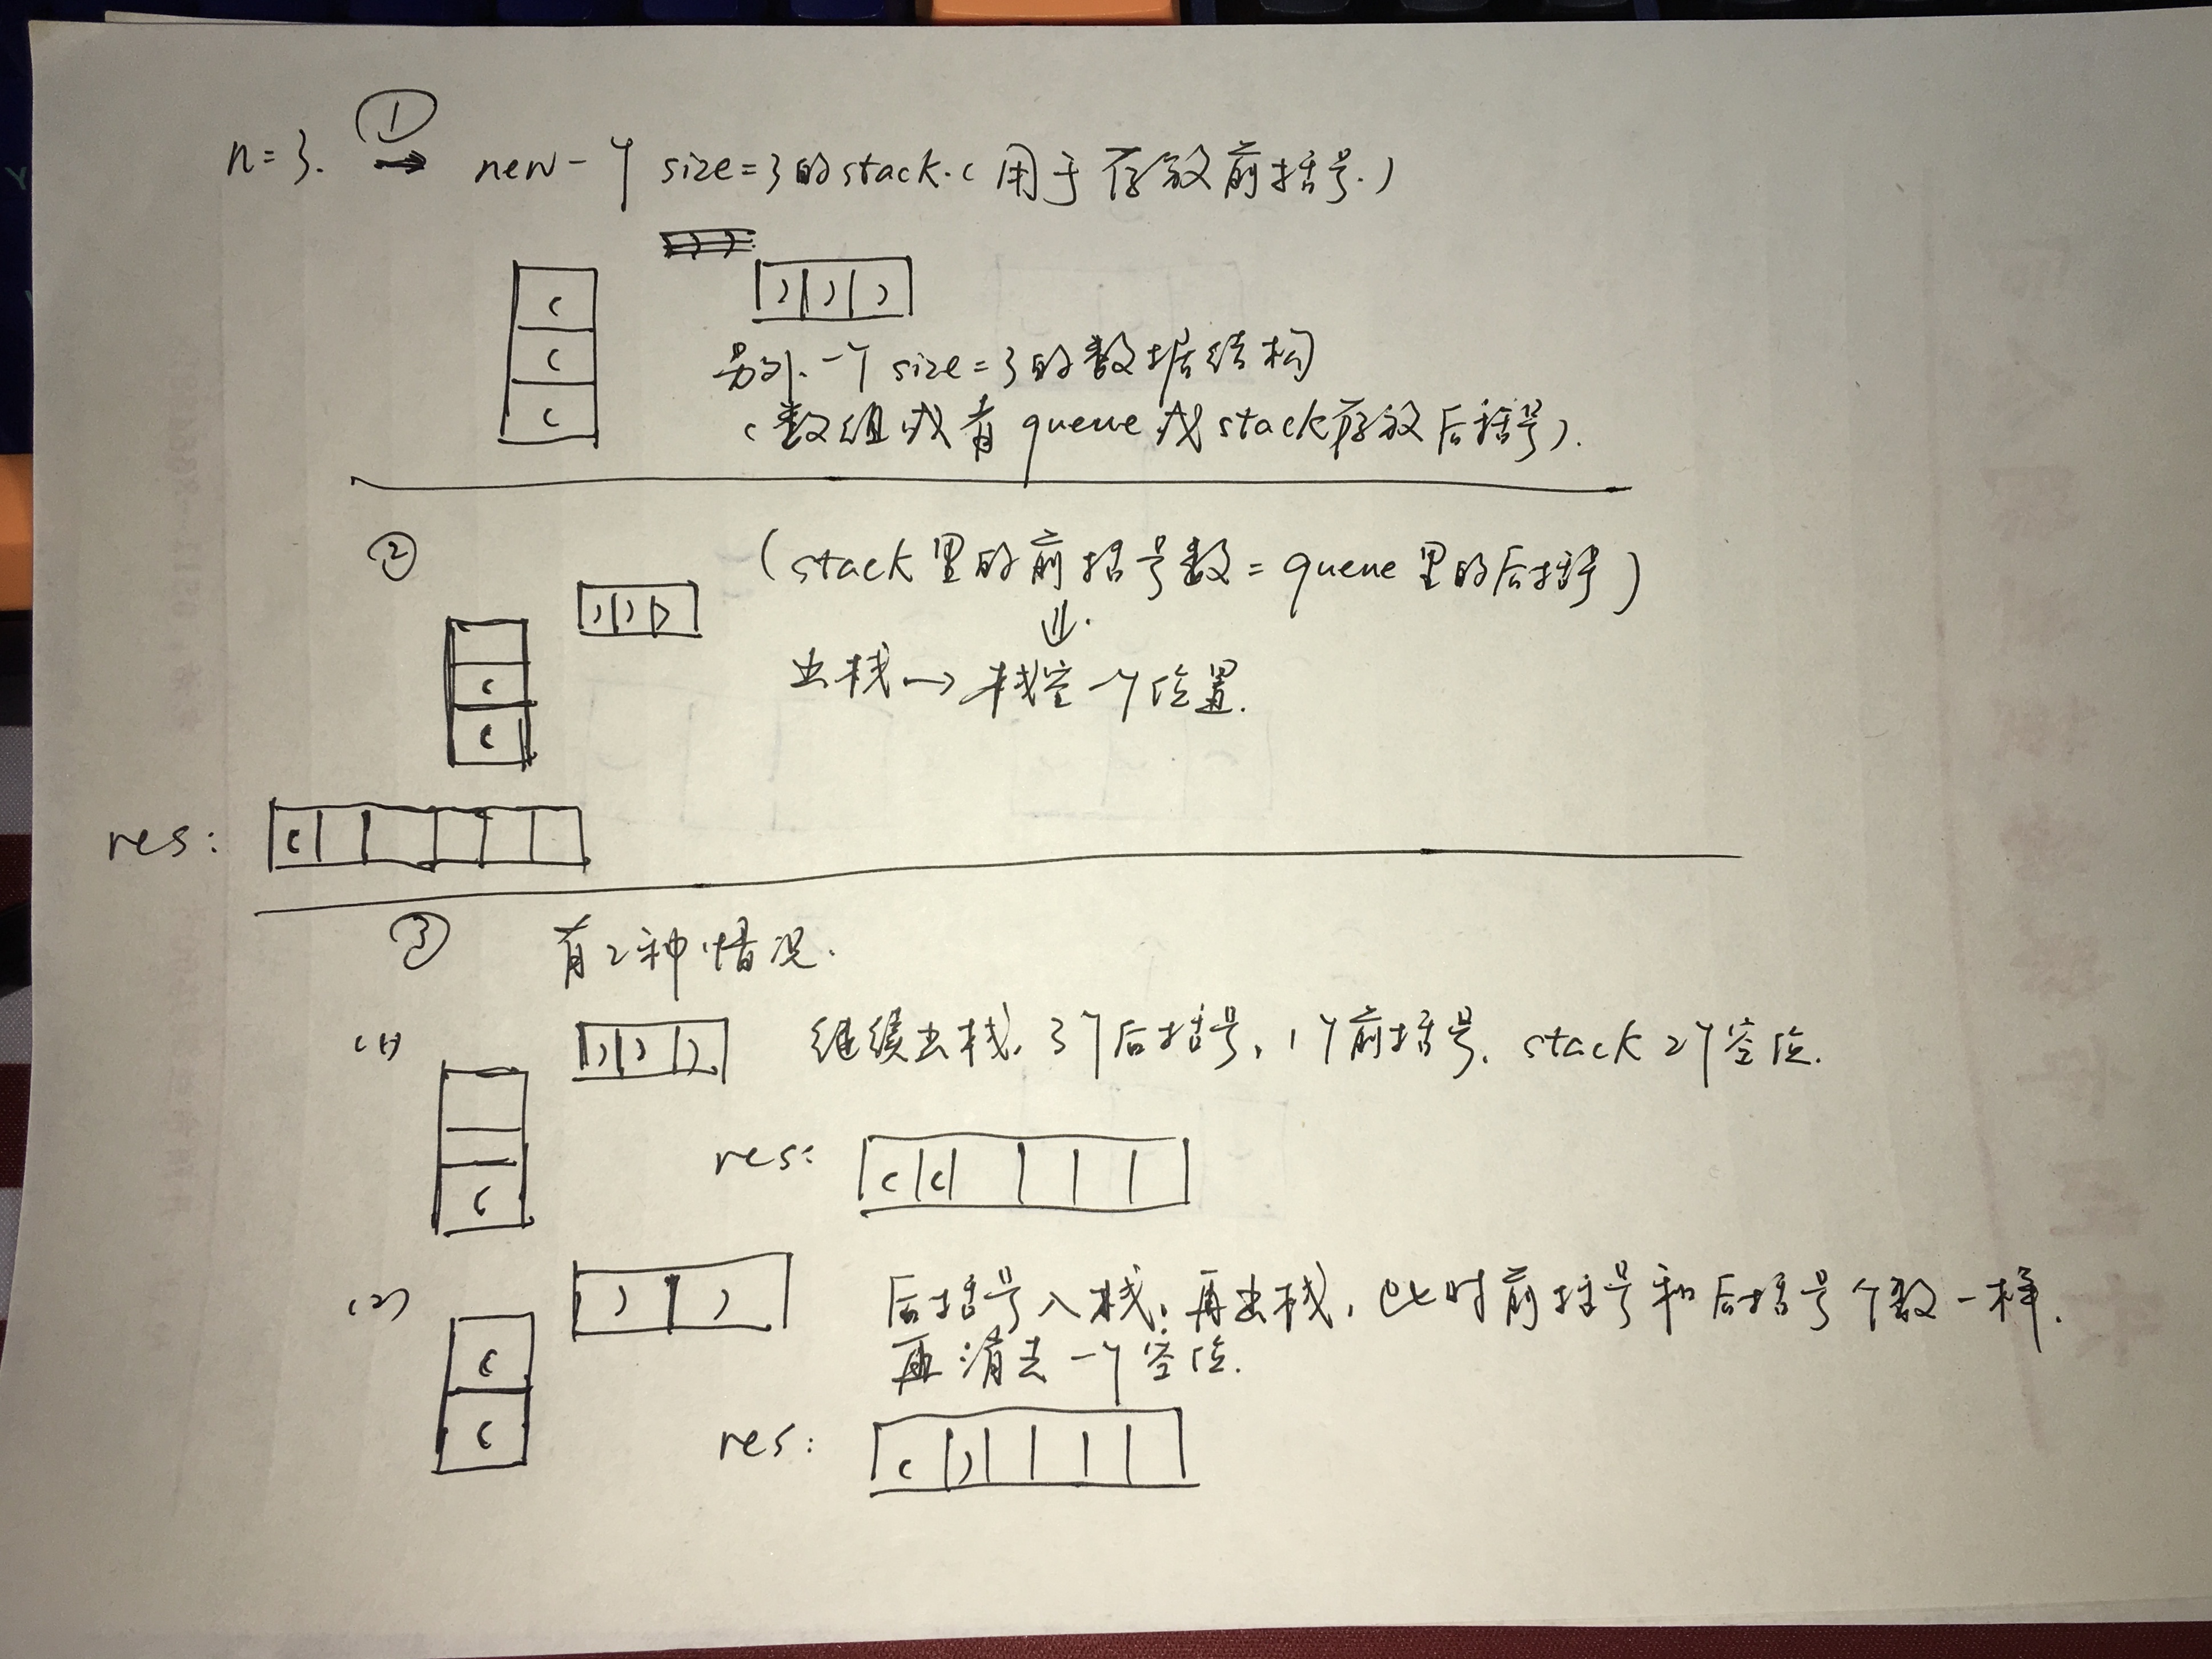 ①
n=3. → new一个 size=3的stack.(用于存放前括号.)
( ) ) )
(
(
另外.一个 size=3的数据结构
(数组或者 queue 或 stack 存放后括号).
② (stack 里的前括号数=queue 里的后括号)
) ) )
⇓.
( 出栈→栈空一个位置.
(
res: (
③ 有2种情况.
(1) ) ) ) 继续出栈, 3个后括号, 1个前括号. stack 2个空位.
( res: ( (
(2) ) ) 后括号入栈, 再出栈, 此时前括号和后括号个数一样.
( 再消去一个空位.
( res: ( )